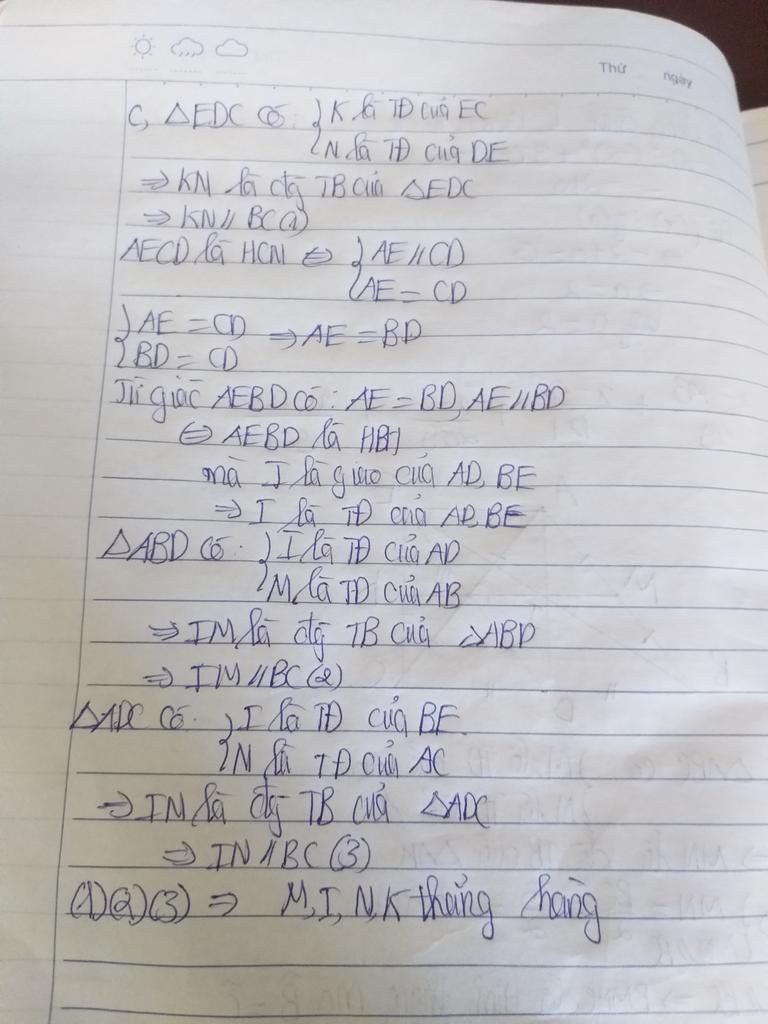 Thứ ngày
c, △EDC có: { K là TĐ của EC
N là TĐ của DE
⇒ KN là đg TB của △EDC
⇒ KN // BC (1)
AECD là HCN ⇔ { AE // CD
AE = CD
{ AE = CD ⇒ AE = BD
BD = CD
Tứ giác AEBD có: AE = BD, AE // BD
⇔ AEBD là HBH
mà I là giao của AD, BE
⇒ I là TĐ của AD, BE
△ABD có: { I là TĐ của AD
M là TĐ của AB
⇒ IM là đg TB của △ABD
⇒ IM // BC (2)
△ADC có: { I là TĐ của BE
N là TĐ của AC
⇒ IN là đg TB của △ADC
⇒ IN // BC (3)
(1)(2)(3) ⇒ M, I, N, K thẳng hàng